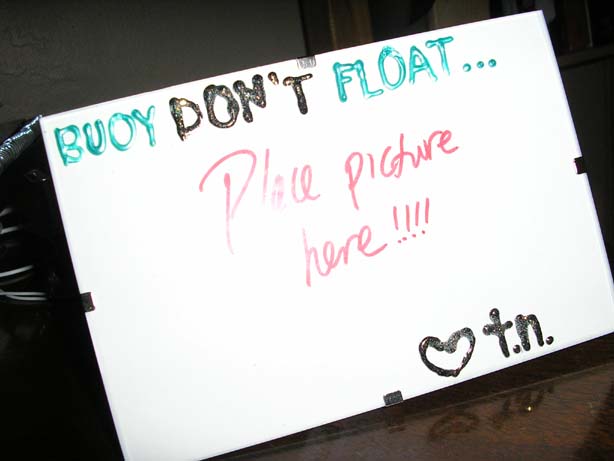 BUOY DON'T FLOAT...
Place picture
here!!!!
♡ t.n.